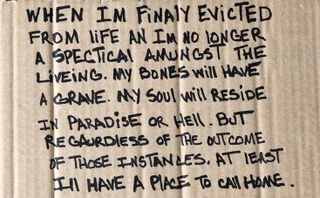 WHEN IM FINALY EVICTED
FROM LIFE AN IM NO LONGER
A SPECTICAL AMUNGST THE
LIVEING. MY BONES WILL HAVE
A GRAVE. MY SOUL WILL RESIDE
IN PARADISE OR HELL. BUT
REGAURDLESS OF THE OUTCOME
OF THOSE INSTANCES, AT LEAST
Ill HAVE A PLACE TO CALL HOME.